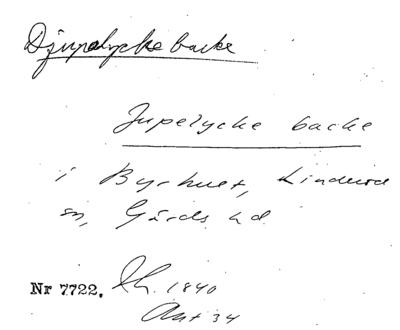 Djupelycke backe
Jupelycke backe
i Byrhult, Linderöd
sn, Gärds hd
Nr 7722. Lh. 1840
Ant 34